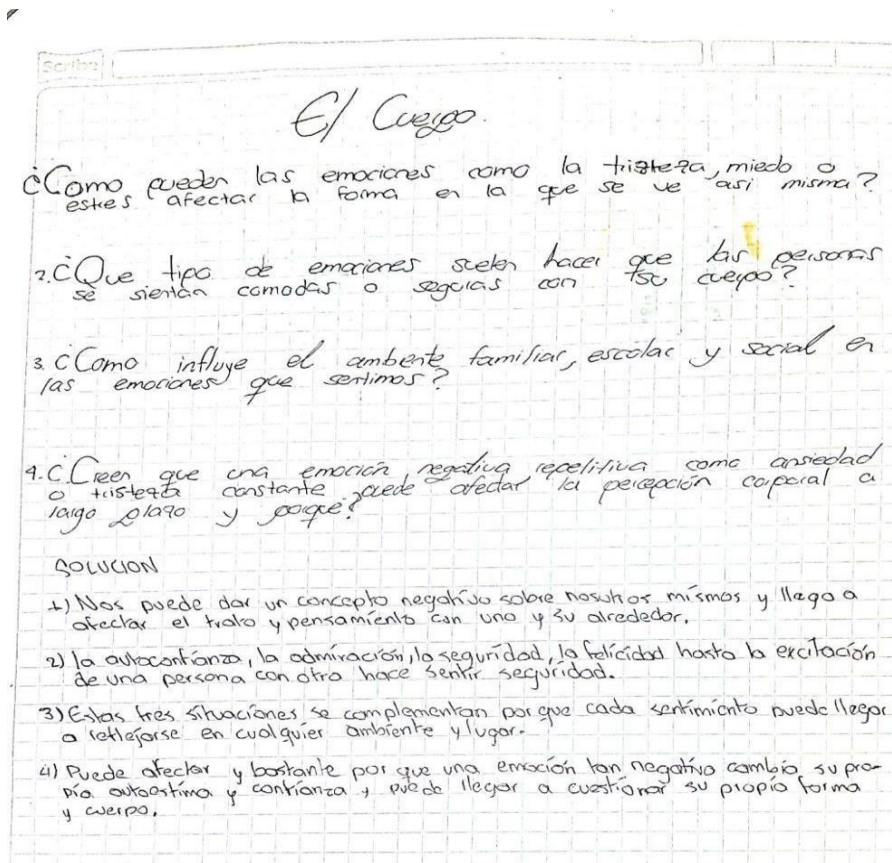 Scribe
El Cuerpo.
¿Como pueden las emociones como la tristeza, miedo o
estres afectar la forma en la que se ve asi misma?
2. ¿Que tipo de emociones suelen hacer que las personas
se sientan comodas o seguras con su cuerpo?
3. ¿Como influye el ambiente familiar, escolar y social en
las emociones que sentimos?
4. ¿Creen que una emoción negativa repetitiva como ansiedad
o tristeza constante puede afectar la percepción corporal a
largo plazo y porque?
SOLUCION
1) Nos puede dar un concepto negativo sobre nosotros mismos y llega a
afectar el trato y pensamiento con uno y su alrededor.
2) la autoconfianza, la admiración, la seguridad, la felicidad hasta la excitación
de una persona con otra hace sentir seguridad.
3) Estas tres situaciones se complementan por que cada sentimiento puede llegar
a reflejarse en cualquier ambiente y lugar.
4) Puede afectar y bastante por que una emoción tan negativa cambia su pro-
pía autoestima y confianza y puede llegar a cuestionar su propio forma
y cuerpo.